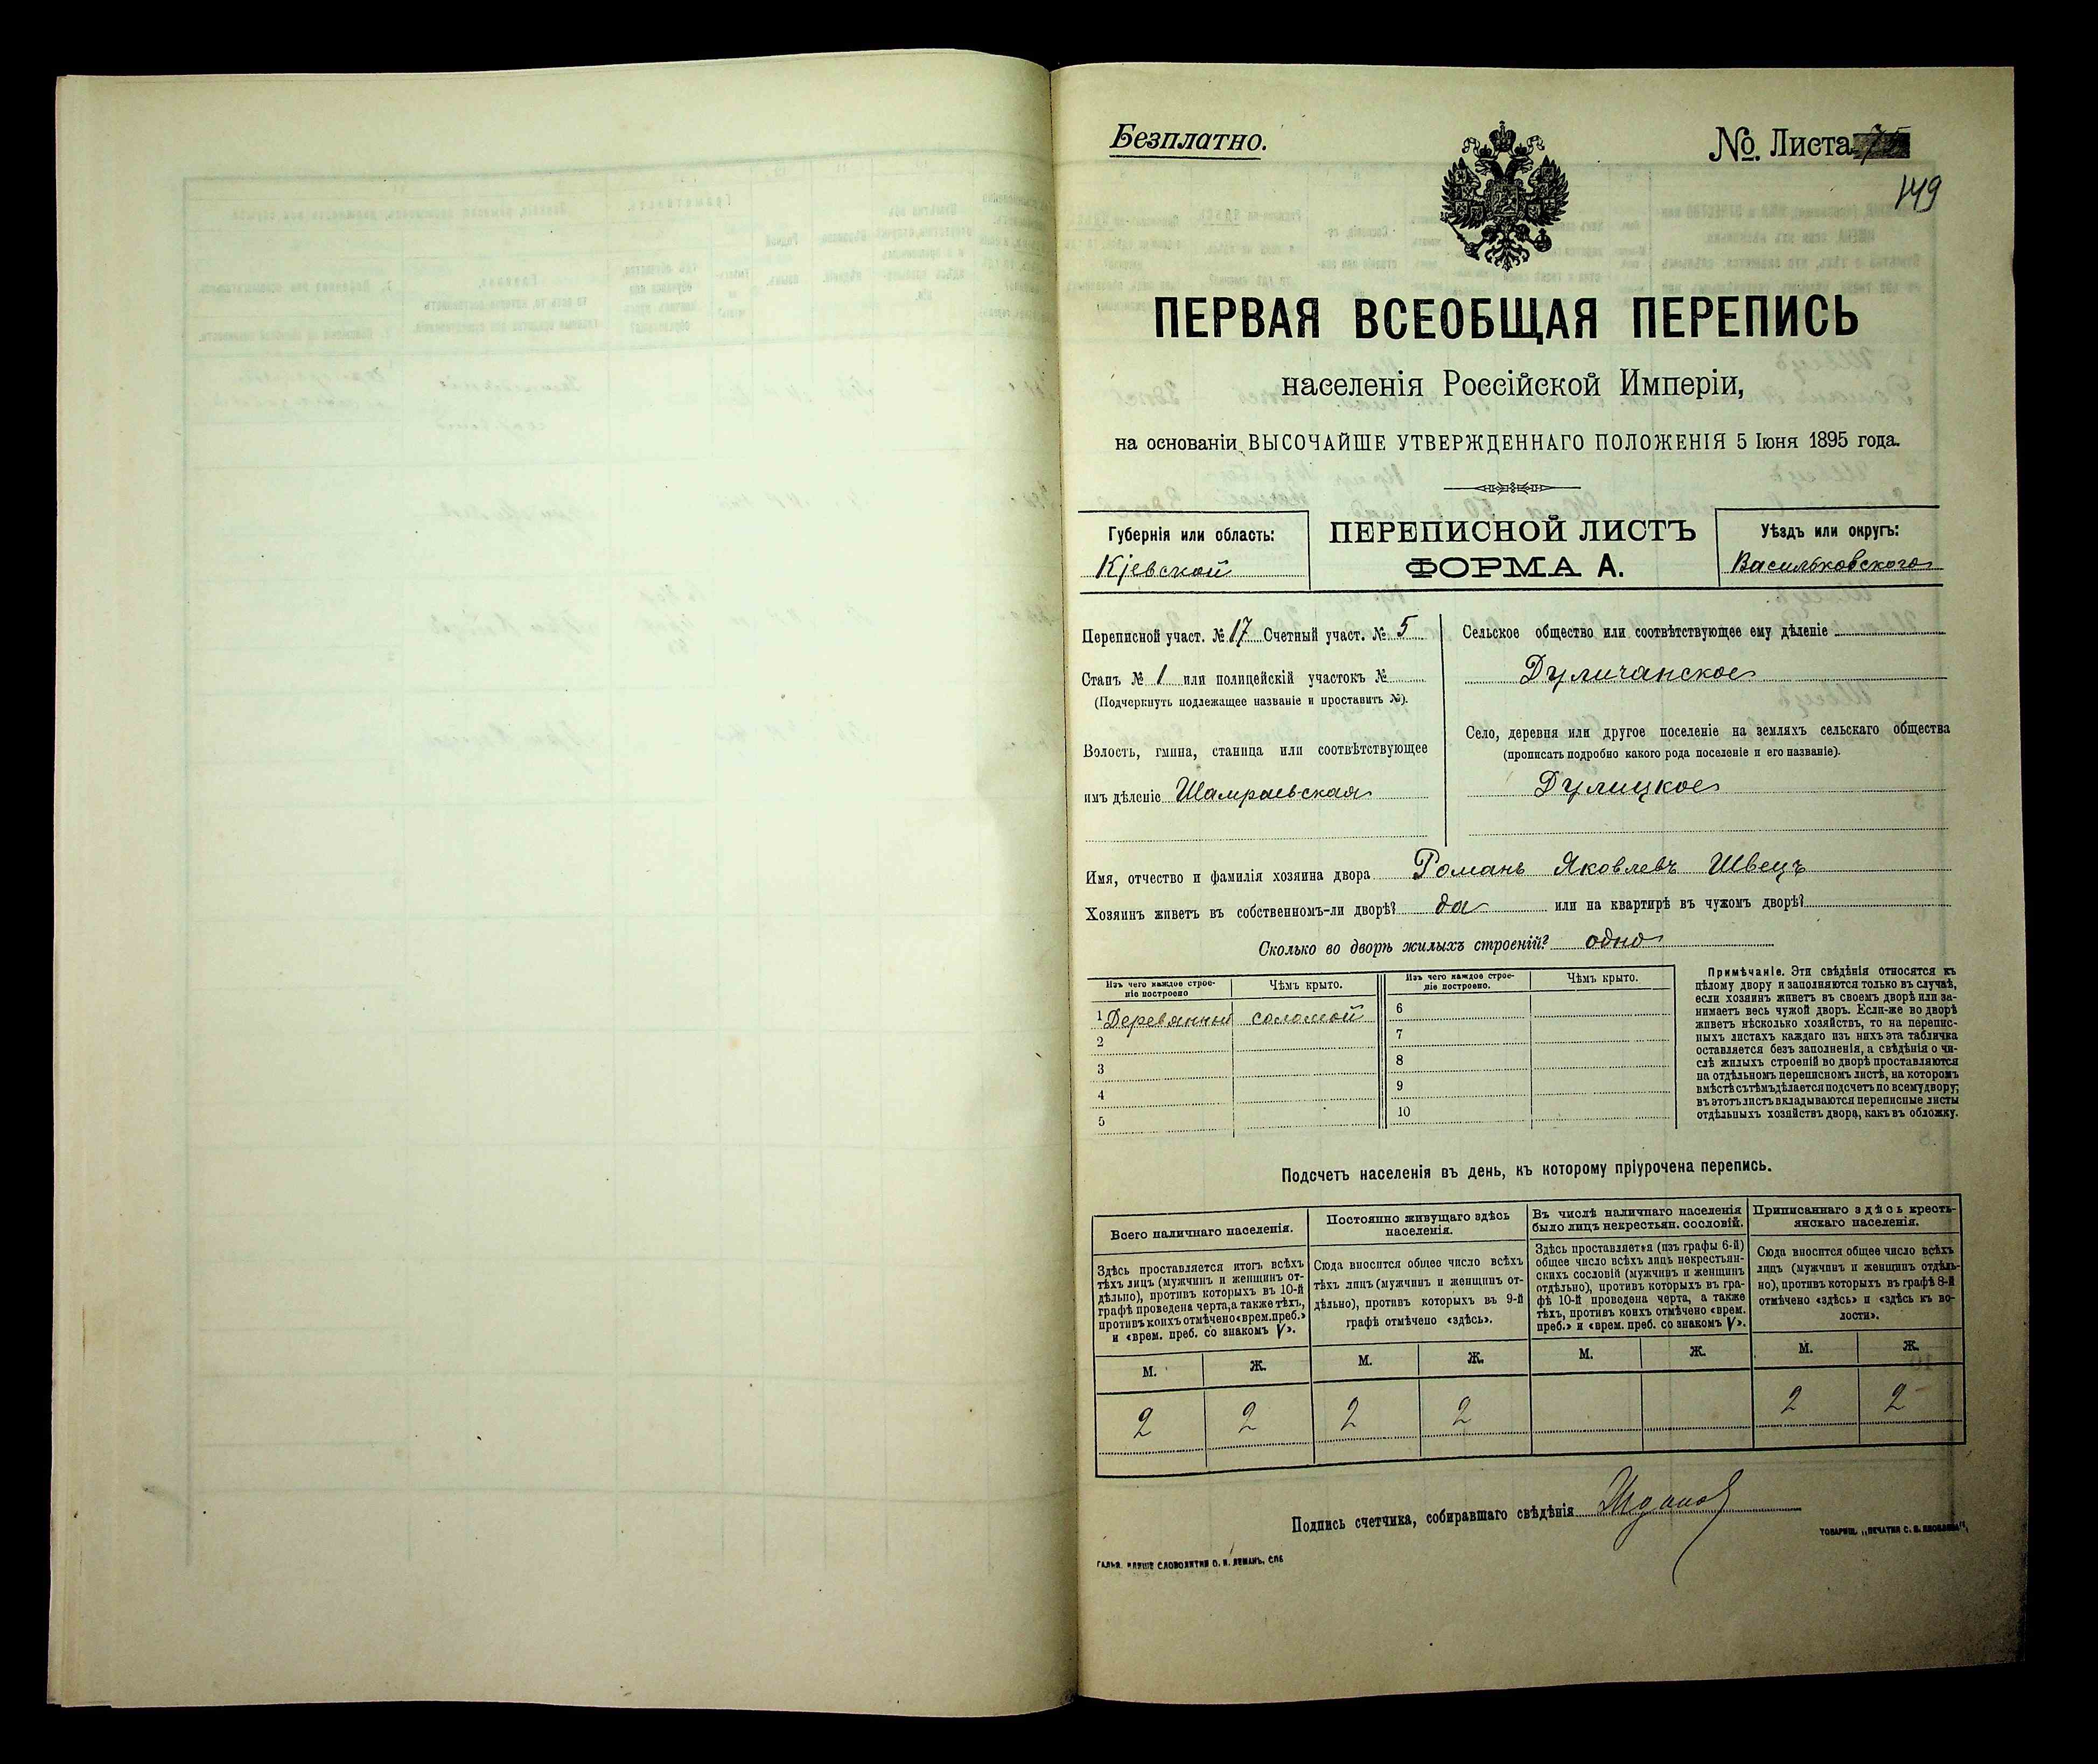 Безплатно.
№. Листа
149
ПЕРВАЯ ВСЕОБЩАЯ ПЕРЕПИСЬ
населенія Россійской Имперіи,
на основаніи ВЫСОЧАЙШЕ УТВЕРЖДЕННАГО ПОЛОЖЕНІЯ 5 Іюня 1895 года.
Губернія или область:
Кіевской
ПЕРЕПИСНОЙ ЛИСТЪ
ФОРМА А.
Уѣздъ или округъ:
Васильковского
Переписной участ. № 17 Счетный участ. № 5
Станъ № 1 или полицейскій участокъ №
(Подчеркнуть подлежащее названіе и проставить №).
Волость, гмина, станица или соотвѣтствующее
имъ дѣленіе Шамраевская
Сельское общество или соотвѣтствующее ему дѣленіе
Дуличанское
Село, деревня или другое поселеніе на земляхъ сельскаго общества
(прописать подробно какого рода поселеніе и его названіе).
Дулицкое
Имя, отчество и фамилія хозяина двора Романъ Яковлевъ Швецъ
Хозяинъ живетъ въ собственномъ-ли дворѣ? да или на квартирѣ въ чужомъ дворѣ?
Сколько во дворѣ жилыхъ строеній? одно
Изъ чего каждое строе-
ніе построено
Чѣмъ крыто.
Изъ чего каждое строе-
ніе построено.
Чѣмъ крыто.
1 Деревянный соломой
2
3
4
5
6
7
8
9
10
Примѣчаніе. Эти свѣдѣнія относятся къ
цѣлому двору и заполняются только въ случаѣ,
если хозяинъ живетъ въ своемъ дворѣ или за-
нимаетъ весь чужой дворъ. Если-же во дворѣ
живетъ нѣсколько хозяйствъ, то на перепис-
ныхъ листахъ каждаго изъ нихъ эта табличка
оставляется безъ заполненія, а свѣдѣнія о чи-
слѣ жилыхъ строеній во дворѣ проставляются
на отдѣльномъ переписномъ листѣ, на которомъ
вмѣстѣ съ тѣмъ дѣлается подсчетъ по всему двору;
въ этотъ листъ вкладываются переписные листы
отдѣльныхъ хозяйствъ двора, какъ въ обложку.
Подсчетъ населенія въ день, къ которому пріурочена перепись.
Всего наличнаго населенія.
Здѣсь проставляется итогъ всѣхъ
тѣхъ лицъ (мужчинъ и женщинъ от-
дѣльно), противъ которыхъ въ 10-й
графѣ проведена черта, а также тѣхъ,
противъ коихъ отмѣчено «врем. преб.»
и «врем. преб. со знакомъ V».
Постоянно живущаго здѣсь
населенія.
Сюда вносится общее число всѣхъ
тѣхъ лицъ (мужчинъ и женщинъ от-
дѣльно), противъ которыхъ въ 9-й
графѣ отмѣчено «здѣсь».
Въ числѣ наличнаго населенія
было лицъ некрестьян. сословій.
Здѣсь проставляется (изъ графы 6-й)
общее число всѣхъ лицъ некрестьян-
скихъ сословій (мужчинъ и женщинъ
отдѣльно), противъ которыхъ въ гра-
фѣ 10-й проведена черта, а также
тѣхъ, противъ коихъ отмѣчено «врем.
преб.» и «врем. преб. со знакомъ V».
Приписаннаго здѣсь кресть-
янскаго населенія.
Сюда вносится общее число всѣхъ
лицъ (мужчинъ и женщинъ отдѣль-
но), противъ которыхъ въ графѣ 8-й
отмѣчено «здѣсь» и «здѣсь къ во-
лости».
М. Ж. М. Ж. М. Ж. М. Ж.
2 2 2 2 2 2
Подпись счетчика, собиравшаго свѣдѣнія
ТОВАРИЩ. „ПЕЧАТНЯ С. П. ЯКОВЛЕВА“,
СЛОВОЛИТНИ О. И. ЛЕМАНЪ, СПБ